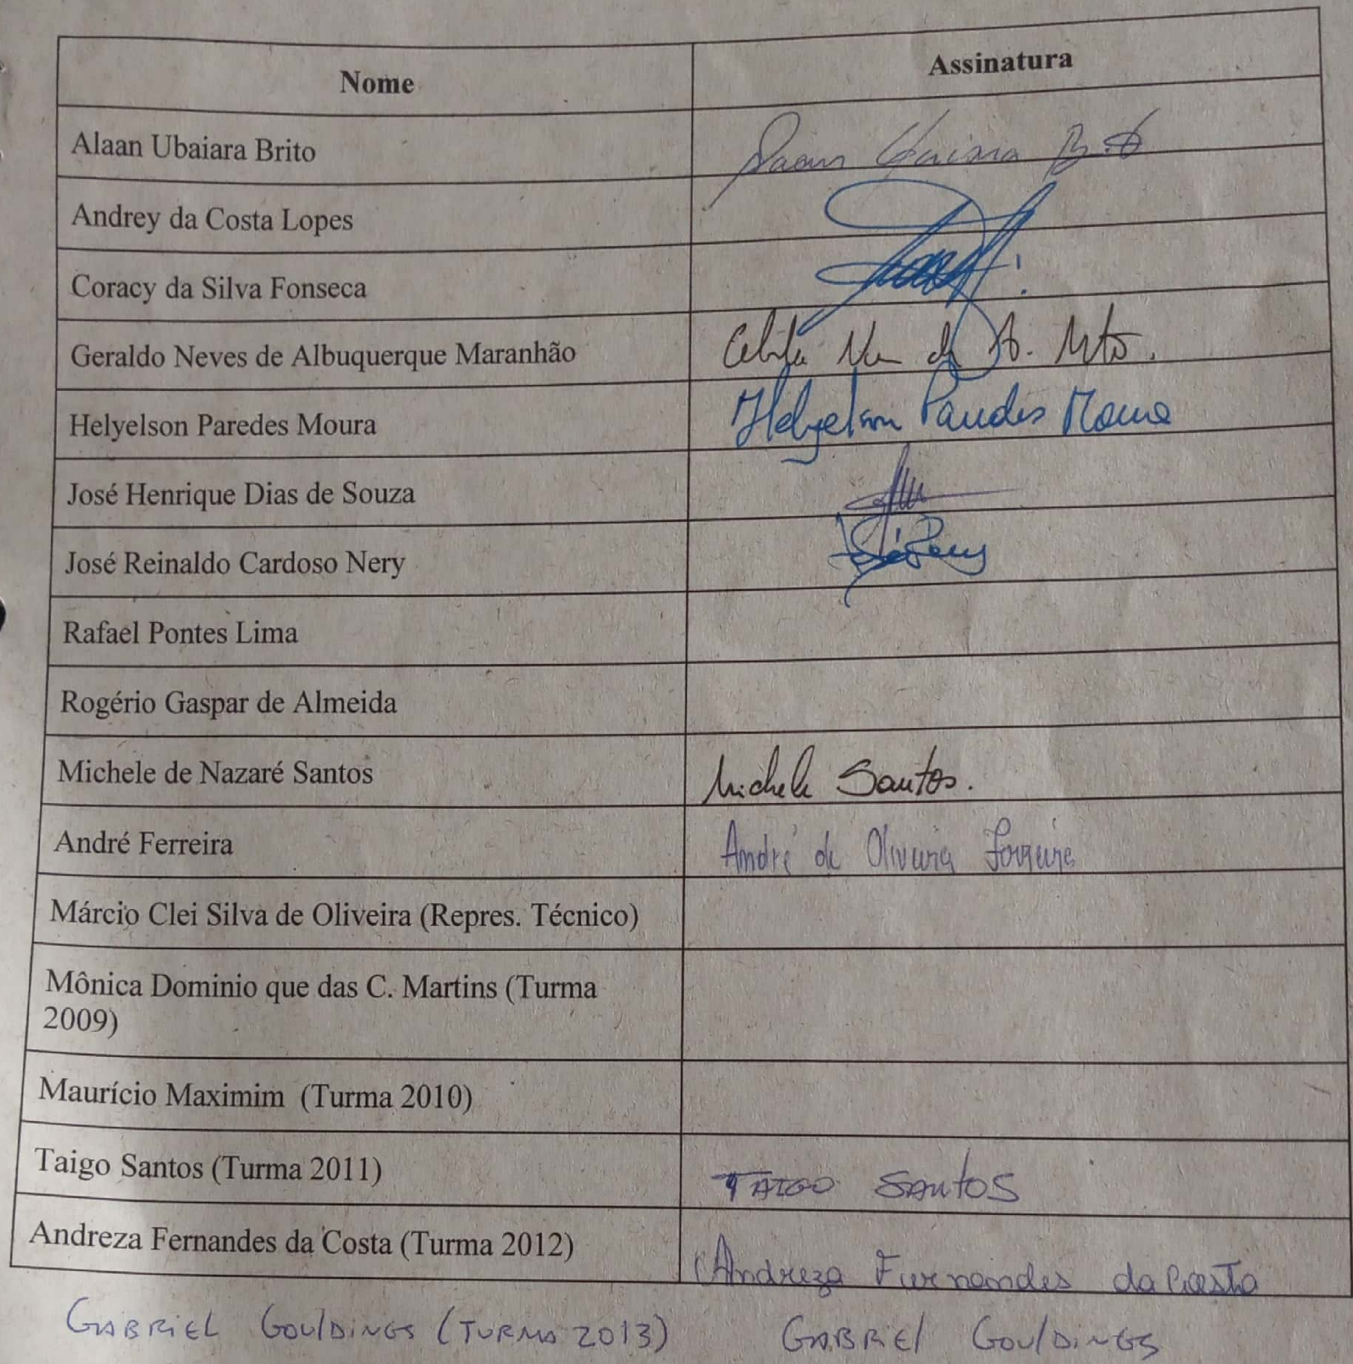 Nome Assinatura
Alaan Ubaiara Brito
Andrey da Costa Lopes
Coracy da Silva Fonseca
Geraldo Neves de Albuquerque Maranhão
Helyelson Paredes Moura Helyelson Paredes Moura
José Henrique Dias de Souza
José Reinaldo Cardoso Nery
Rafael Pontes Lima
Rogério Gaspar de Almeida
Michele de Nazaré Santos Michele Santos.
André Ferreira André de Oliveira Ferreira
Márcio Clei Silva de Oliveira (Repres. Técnico)
Mônica Dominio que das C. Martins (Turma
2009)
Maurício Maximim (Turma 2010)
Taigo Santos (Turma 2011) TAIGO SANTOS
Andreza Fernandes da Costa (Turma 2012) Andreza Fernandes da Costa
GABRIEL GOULDINGS (TURMA 2013) GABRIEL GOULDINGS